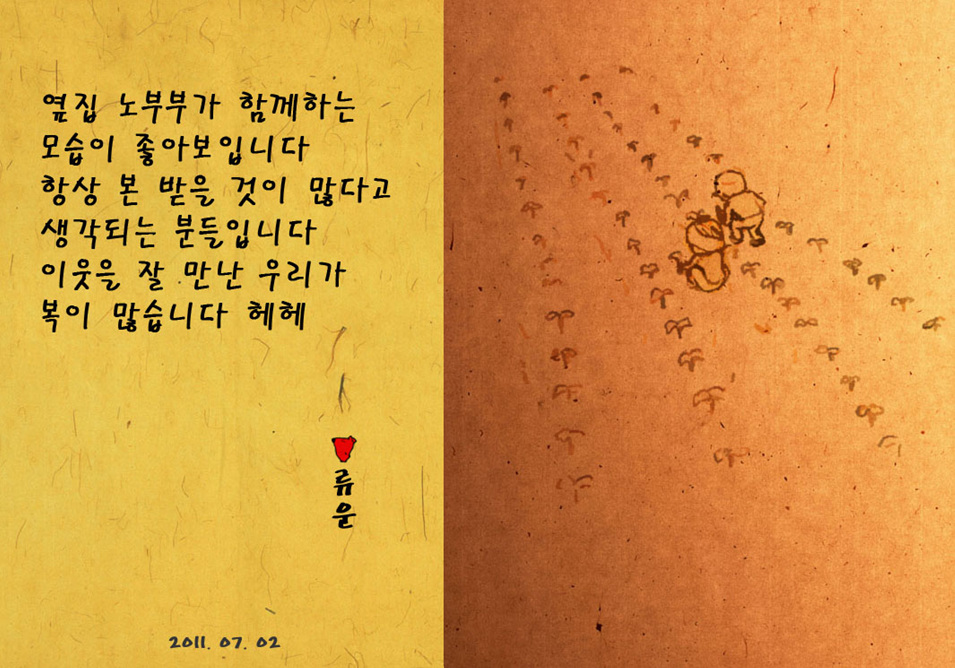 옆집 노부부가 함께하는
모습이 좋아보입니다
항상 본 받을 것이 많다고
생각되는 분들입니다
이웃을 잘 만난 우리가
복이 많습니다 헤헤
류
운
2011. 07. 02